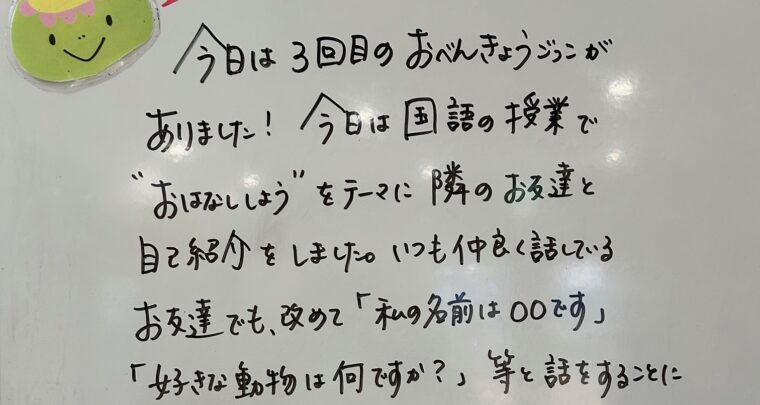 今日は3回目のおべんきょうごっこが
ありました！今日は国語の授業で
"おはなししよう"をテーマに隣のお友達と
自己紹介をしました。いつも仲良く話している
お友達でも、改めて「私の名前は○○です」
「好きな動物は何ですか？」等と話をすることに